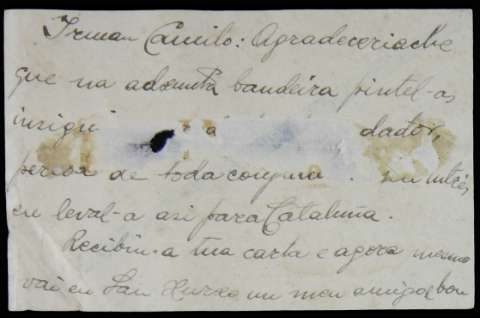 Irman Camilo: Agradeceriache
que na adxunta bandeira pintel-as
insigni a dador,
de toda
en leval-a asi para Cataluña.
Recibin-a tua carta e agora mesmo
vai en San un meu amigo e bon